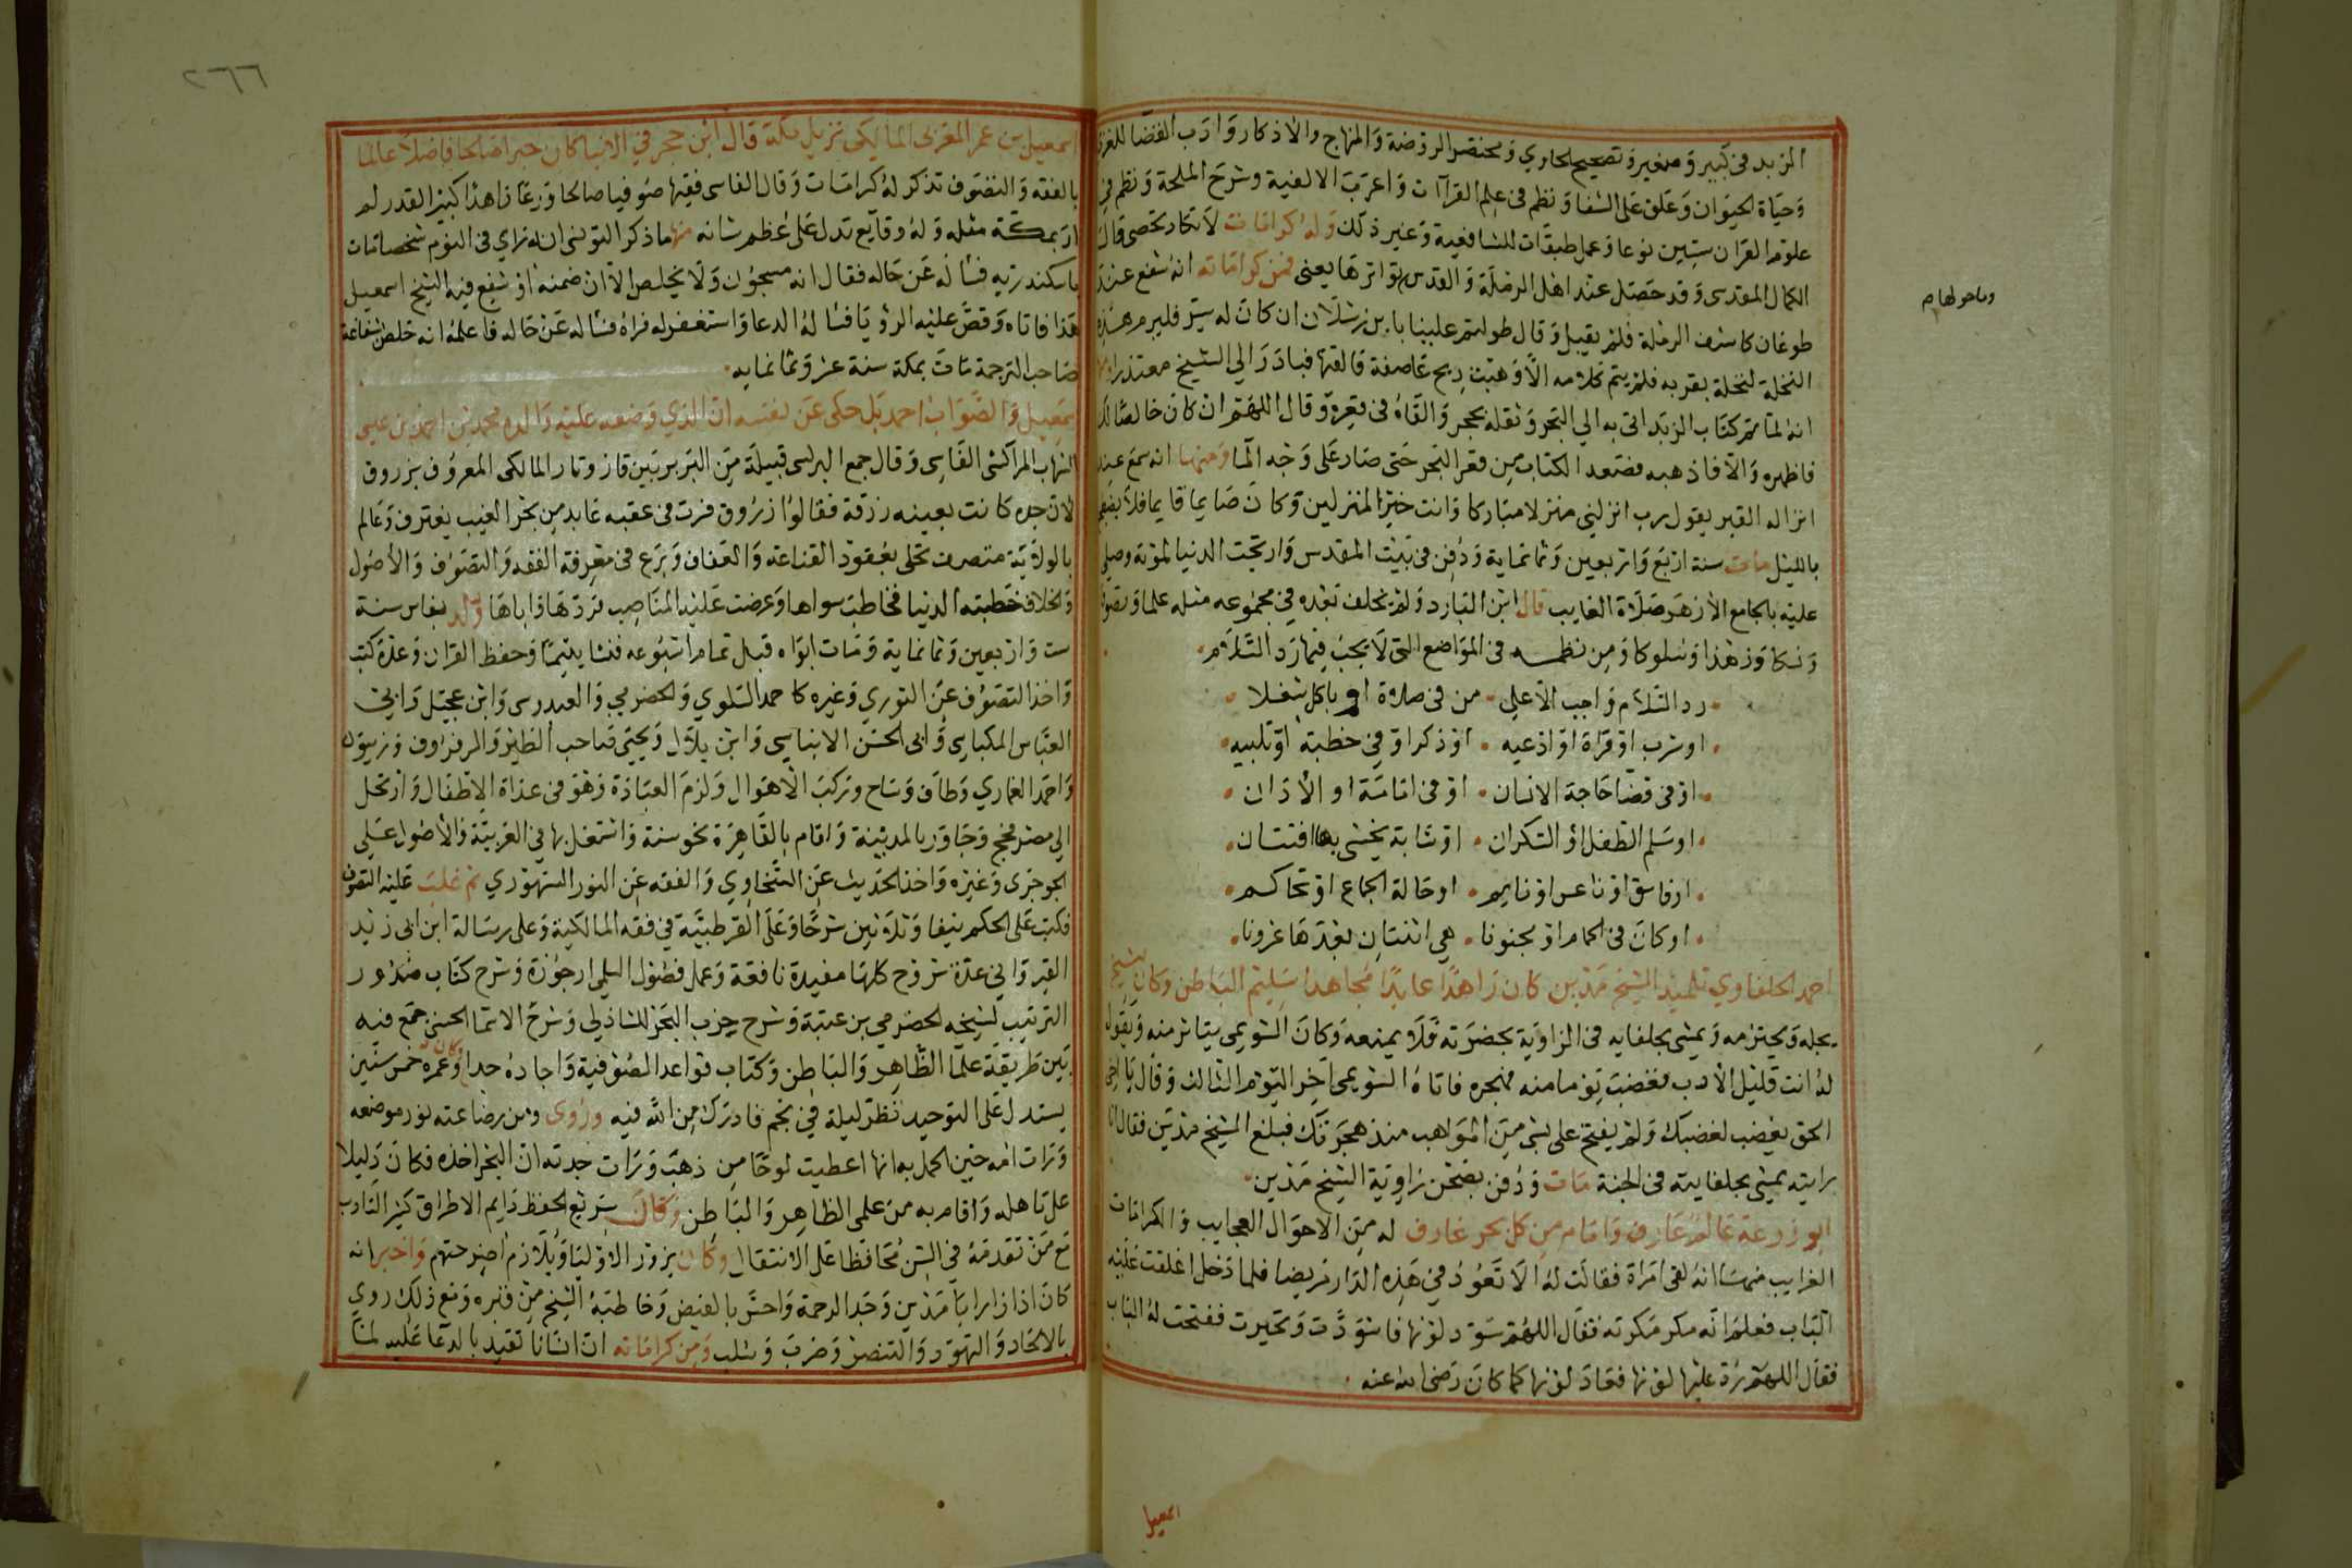 الزبد في كبير وصغير وتصحيح الحاوي ومختصر الروضة والمنهاج والاذكار وادب القضا للغزي
وحياة الحيوان وعلق على الشفا ونظم في علم القراآت واعرب الالفية وشرح الملحة ونظم في
علوم القران ستين نوعا وعمل طبقات للشافعية وغير ذلك وله كرامات لا تكاد تحصى قال
الكمال المقدسي وقد حصل عند اهل الرملة والقدس تواترها يعني فمن كراماته انه شفع عند
طوغان كاشف الرملة فلم يقبل وقال طولتم علينا بابن رسلان ان كان له سر فليرم هذه
النخلة لنخلة بقربه فلم يتم كلامه الا وهبت ريح عاصفة فالقتها فبادر الي الشيخ معتذرا
انه لما تم كتاب الزبد اتى به الي البحر وثقله بحجر والقاه في قعره وقال اللهم ان كان خالصا لك
فاظهره والا فاذهبه فصعد الكتاب من قعر البحر حتى صار على وجه الما ومنها انه سمع عند
انزاله القبر يقول رب انزلني منزلا مباركا وانت خير المنزلين وكان صايما قايما فلا يضع
بالليل مات سنة اربع واربعين وثمانماية ودفن في بيت المقدس وارتجت الدنيا لموته وصلي
عليه بالجامع الازهر صلاة الغايب قال ابن البارد ولم يخلف بعده في مجموعه مثله علما وتصوفا
ونسكا وزهدا وسلوكا ومن نظمه في المواضع التي لا يجب فيها رد السلام
رد السلام واجب الا على من في صلاة او باكل شغلا
او شرب او قراة او ادعيه او ذكر او في خطبة او تلبيه
او في قضا حاجة الانسان او في اقامة او الاذان
او سلم الطفل او السكران او شابة يخشى بها افتتان
او فاسق او ناعس او نايم او حالة الجماع او تحاكم
او كان في الحمام او مجنونا هي اثنتان بعدها عشرونا
احمد الحلفاوي تلميذ الشيخ مدين كان زاهدا عابدا مجاهدا سليم الباطن وكان الشيخ
يجله ويحترمه ويمشي بحلفايه في الزاوية بحضرته فلا يمنعه وكان الشويمي يتاثر منه ويقول
له انت قليل الادب فغضب يوما منه فهجره فاتاه الشويمي اخر اليوم الثالث وقال يا اخي
الحق يغضب لغضبك ولم يفتح علي بشي من المواهب منذ هجرتك فبلغ الشيخ مدين فقال انا
رايته يمشي بحلفايته في الجنة مات ودفن بصحن زاوية الشيخ مدين
ابو زرعة عالم عارف وامام من كل بحر غارف له من الاحوال العجايب والكرامات
الغرايب منها انه لقي امراة فقالت له الا تعود في هذه الدار مريضا فلما دخل اغلقت عليه
الباب فعلم انه مكر مكرته فقال اللهم سود لونها فاسودت وتحيرت ففتحت له الباب
فقال اللهم رد عليها لونها فعاد لونها كما كان رضي الله عنه
وما حولها م
اسمعيل
٢٦٦
اسمعيل بن عمر المغربي المالكي نزيل مكة قال ابن حجر في الانبا كان خيرا صالحا فاضلا عالما
بالفقه والتصوف تذكر له كرامات وقال الفاسي فقيها صوفيا صالحا ورعا زاهدا كبير القدر لم
ار بمكة مثله وله وقايع تدل على عظم شانه منها ما ذكر التونسي انه راي في النوم شخصا مات
باسكندريه فساله عن حاله فقال انه مسجون ولا يخلص الا ان ضمنه او شفع فيه الشيخ اسمعيل
هذا فاتاه وقص عليه الرؤيا فسا له الدعا واستغفر له فراه فساله عن حاله فاعلمه انه خلص بشفاعة
صاحب الترجمة مات بمكة سنة عشر وثمانمايه
اسمعيل والصواب احمد بل حكى عن نفسه ان الذي وضعه عليه والده محمد بن احمد بن عيسى
الشهاب المراكشي الفاسي وقال جمع البرلسي قبيلة من البربر بين فاز وتار المالكي المعروف بزروق
لان جده كانت بعينه زرقة فقالوا زروق فسرت في عقبه عابد من بحر الغيب يغترف وعالم
بالولاية متصرف تحلى بعقود القناعة والعفاف وبرع في معرفة الفقه والتصوف والاصول
والخلاف خطبته الدنيا فخاطب سواها وعرضت عليه المناصب فردها واباها ولد بفاس سنة
ست واربعين وثمانماية ومات ابواه قبل تمام اسبوعه فنشا يتيما وحفظ القران وعدة كتب
واخذ التصوف عن القوري وغيره كاحمد السلوي والحضرمي والعيدروس وابن عجيل وابي
العباس المكباسي وابي الحسن الابناسي وابن بلال ويحيى صاحب الطير والمرفروف وزيتون
واحمد الغماري وطاف وساح وركب الاهوال ولزم العبادة وهو في عداة الاطفال وارتحل
الي مصر فحج وجاور بالمدينة واقام بالقاهرة نحو سنة واشتغل بها في العربية والاصول على
الجوجري وغيره واخذ الحديث عن السخاوي والفقه عن النور السنهوري ثم غلب عليه التصوف
فكتب على الحكم نيفا وثلاثين شرحا وعلى القرطبية في فقه المالكية وعلى رسالة ابن ابي زيد
القيرواني عدة شروح كلها مفيدة نافعة وعمل فصول السلمي ارجوزة وشرح كتاب صدور
الترتيب لشيخه الحضرمي بن عقبة وشرح حزب البحر للشاذلي وشرح الاسما الحسنى جمع فيه
بين طريقة علما الظاهر والباطن وكتاب قواعد الصوفية واجاده جدا وكان وعمره خمس سنين
يستدل على التوحيد نظر ليلة في نجم فادرك من الله فيه وروى ومن رضاعته نور موضعه
ورات امه حين الحمل به انها اعطيت لوحا من ذهب ورات جدته ان البحر اخذه فكان دليلا
على تاهله واقامه به من علمي الظاهر والباطن وكان سريع الحفظ دايم الاطراق كثير التادب
مع من تقدمه في السن محافظا على الانتقال وكان يزور الاوليا ويلازم اضرحتهم واخبر انه
كان اذا زار ابا مدين وجد الرحمة واحس بالفيض وخاطبه الشيخ من قبره ومع ذلك روي
بالالحاد والتهود والتنصر وضرب وسلب ومن كراماته ان انسانا تقيد بالدعا عليه لما